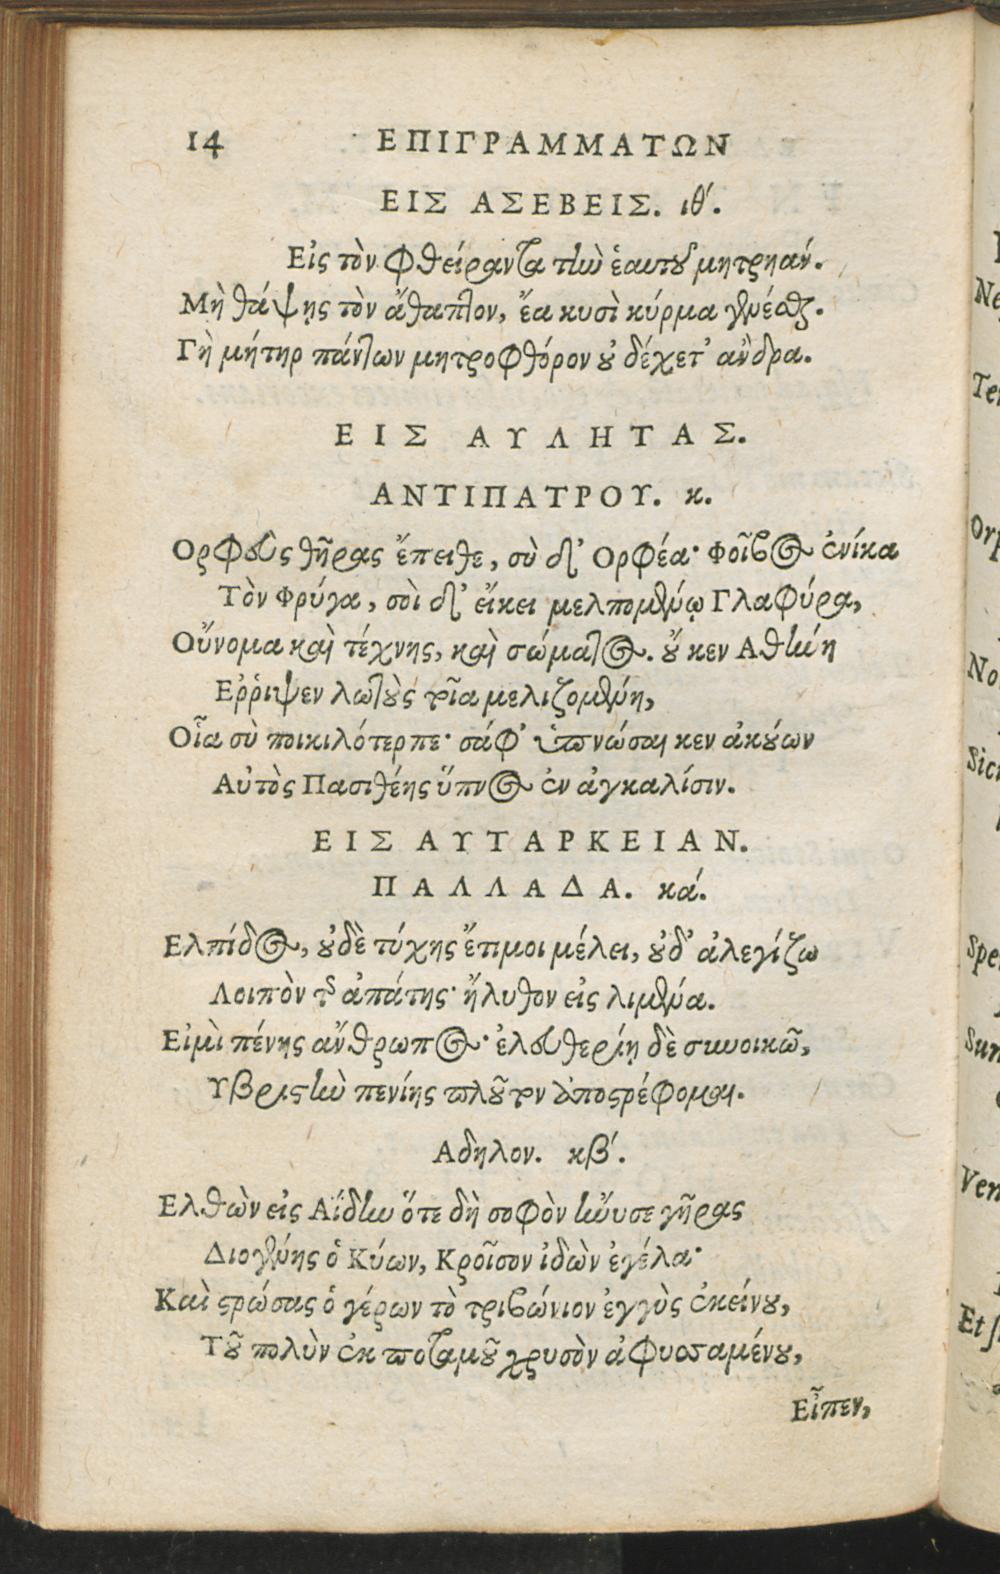 14 ΕΠΙΓΡΑΜΜΑΤΩΝ
ΕΙΣ ΑΣΕΒΕΙΣ. ιθ´.
Εἰς τὸν φθείραντα τὴν ἑαυτοῦ μητρηαν´.
Μὴ θάψῃς τὸν ἄθαπτον, ἔα κυσὶ κύρμα γενέσθαι.
Γὴ μήτηρ πάντων μητροφθόρον οὐ δέχετ᾽ ἄνδρα.
ΕΙΣ ΑΥΛΗΤΑΣ.
ΑΝΤΙΠΑΤΡΟΥ. κ.
Ορφεὺς θῆρας ἔπειθε, σὺ δ᾽ Ορφέα· Φοῖβος ἐνίκα
Τὸν Φρύγα, σοὶ δ᾽ εἴκει μελπομένῳ Γλαφύρα,
Οὔνομα καὶ τέχνης, καὶ σώματος. οὔ κεν Αθήνη
Εῤῥιψεν λωτοὺς τοῖα μελιζομένη,
Οἷα σὺ ποικιλότερπε· σάφ᾽ ὑπνώσαι κεν ἀκούων
Αὐτὸς Πασιθέης ὕπνος ἐν ἀγκαλίσιν.
ΕΙΣ ΑΥΤΑΡΚΕΙΑΝ.
ΠΑΛΛΑΔΑ. κά.
Ελπίδος, οὐδὲ τύχης ἔτι μοι μέλει, οὐδ᾽ ἀλεγίζω
Λοιπὸν τῆς ἀπάτης· ἤλυθον εἰς λιμένα.
Εἰμὶ πένης ἄνθρωπος· ἐλευθερίῃ δὲ συνοικῶ,
Υβριστὴν πενίης πλοῦτον ἀποστρέφομαι.
Αδηλον. κβ´.
Ελθὼν εἰς Αΐδην ὅτε δὴ σοφὸν ἤνυσε γῆρας
Διογένης ὁ Κύων, Κροῖσον ἰδὼν ἐγέλα·
Καὶ στρώσας ὁ γέρων τὸ τριβώνιον ἐγγὺς ἐκείνου,
Τοῦ πολὺν ἐκ ποταμοῦ χρυσὸν ἀφυσσαμένου,
Εἶπεν,